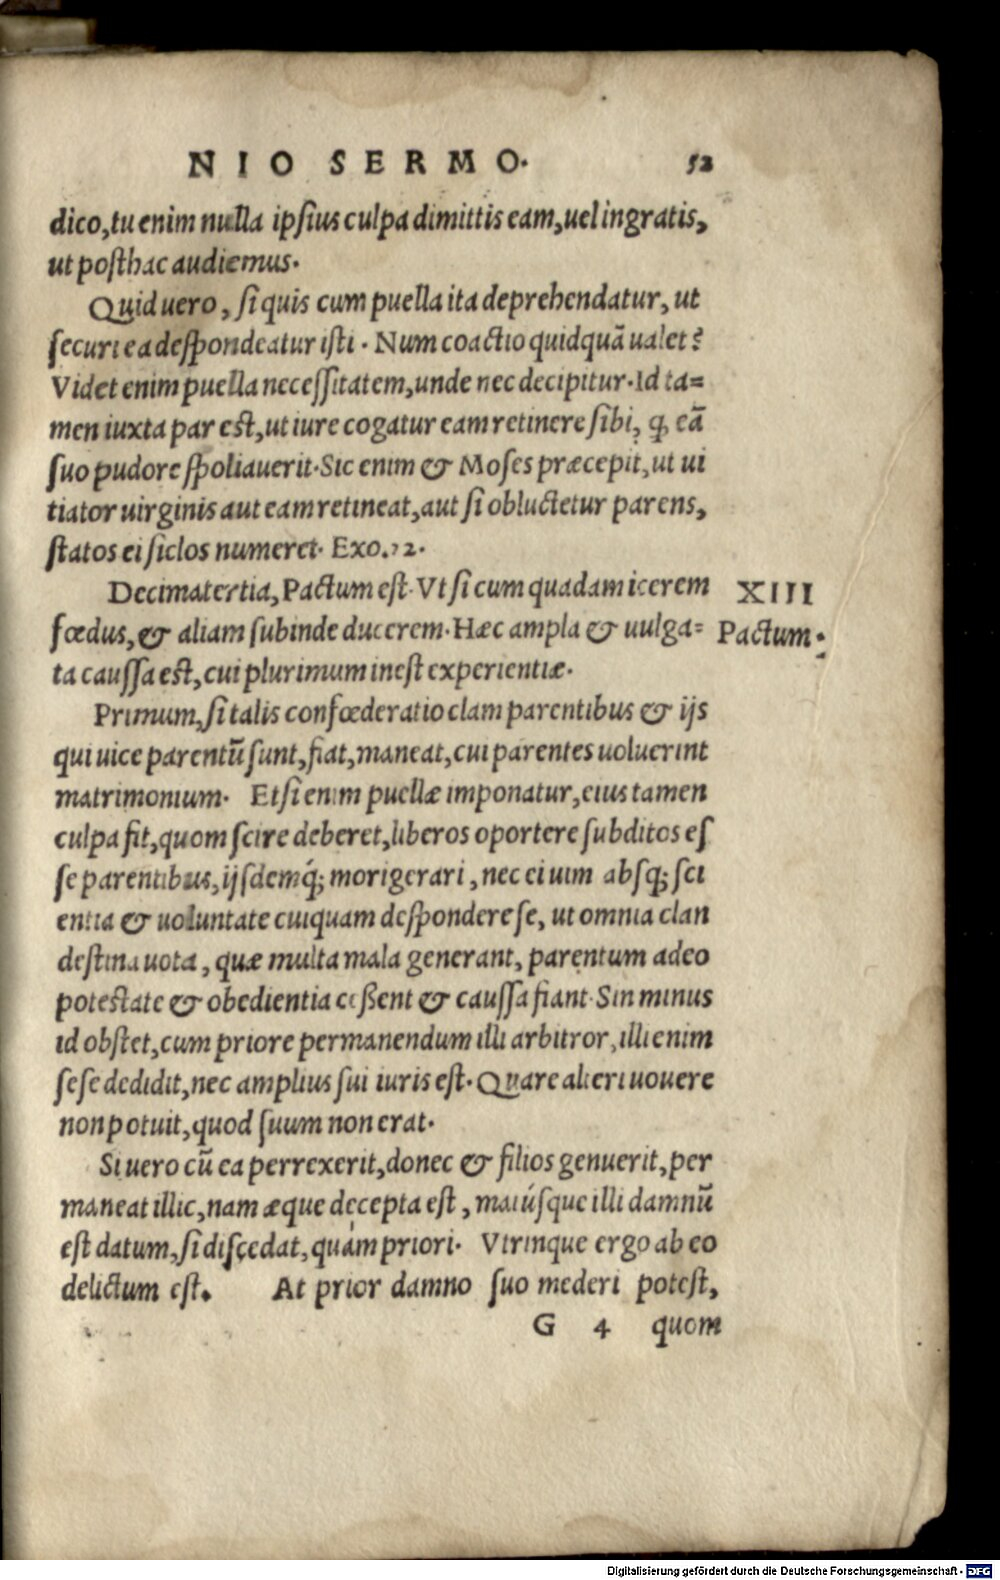 NIO SERMO. 52
dico, tu enim nulla ipsius culpa dimittis eam, uel ingratis,
ut posthac audiemus.
Quid uero, si quis cum puella ita deprehendatur, ut
securi ea despondeatur isti. Num coactio quidquā ualet?
Videt enim puella necessitatem, unde nec decipitur. Id ta=
men iuxta par est, ut iure cogatur eam retinere sibi, ꝙ eā
suo pudore spoliauerit. Sic enim & Moses præcepit, ut ui
tiator uirginis aut eam retineat, aut si obluctetur parens,
statos ei siclos numeret. Exo. 22.
Decimatertia, Pactum est. Vt si cum quadam icerem
fœdus, & aliam subinde ducerem. Hæc ampla & uulga=
ta caussa est, cui plurimum inest experientiæ.
XIII
Pactum.
Primum, si talis confœderatio clam parentibus & ijs
qui uice parentū sunt, fiat, maneat, cui parentes uoluerint
matrimonium. Etsi enim puellæ imponatur, eius tamen
culpa fit, quom scire deberet, liberos oportere subditos es
se parentibus, ijsdemq́; morigerari, nec ei uim absq; sci
entia & uoluntate cuiquam despondere se, ut omnia clan
destina uota, quæ multa mala generant, parentum adeo
potestate & obedientia cessent & caussa fiant. Sin minus
id obstet, cum priore permanendum illi arbitror, illi enim
sese dedidit, nec amplius sui iuris est. Quare alteri uouere
non potuit, quod suum non erat.
Si uero cū ea perrexerit, donec & filios genuerit, per
maneat illic, nam æque decepta est, maiúsque illi damnū
est datum, si discedat, quàm priori. Vtrinque ergo ab eo
delictum est. At prior damno suo mederi potest,
G 4 quom
Digitalisierung gefördert durch die Deutsche Forschungsgemeinschaft - DFG